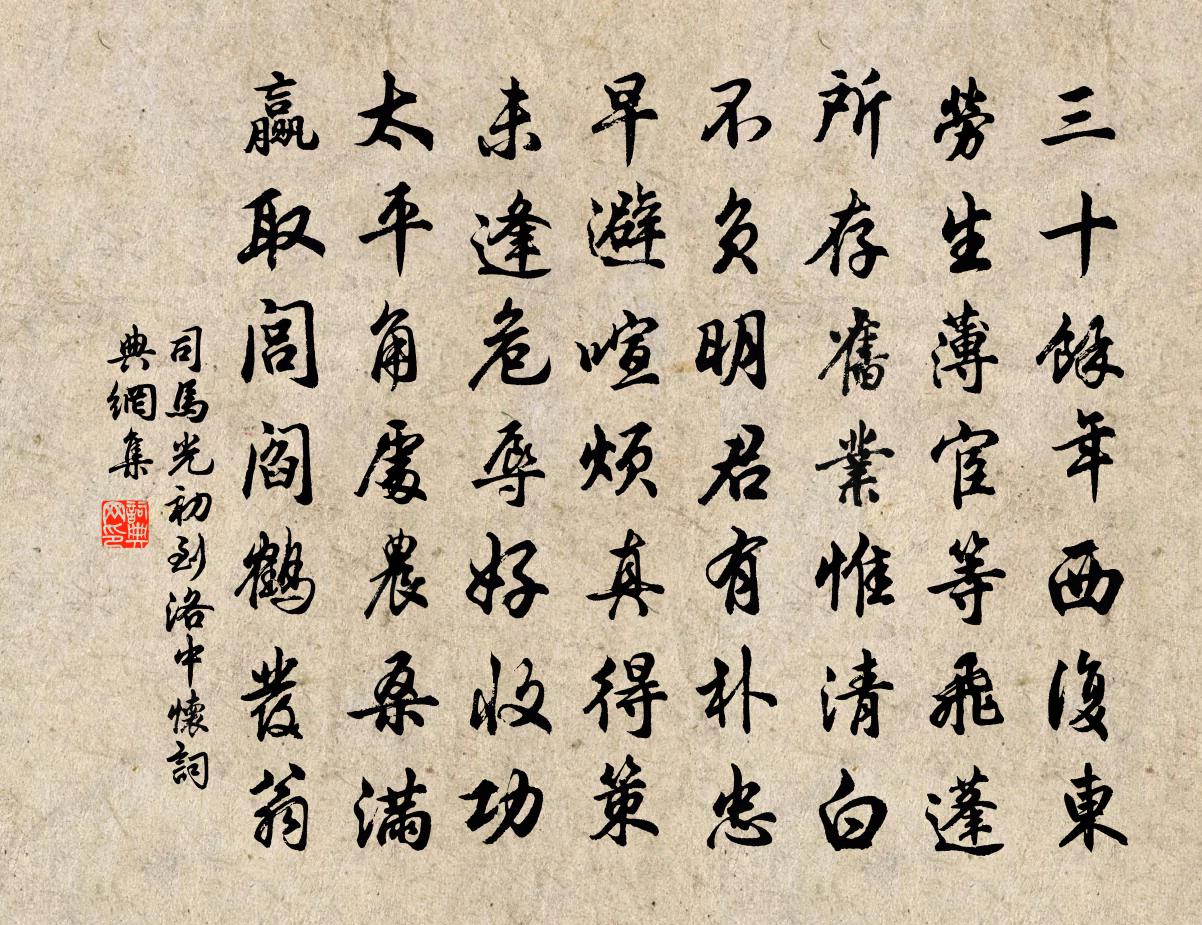 三十餘年西復東
勞生薄宦等飛蓬
所存舊業惟清白
不負明君有朴忠
早避喧煩真得策
未逢危辱好收功
太平角處農桑滿
贏取閭閻鶴發翁
司馬光初到洛中懷詞
典網集
詞典網印